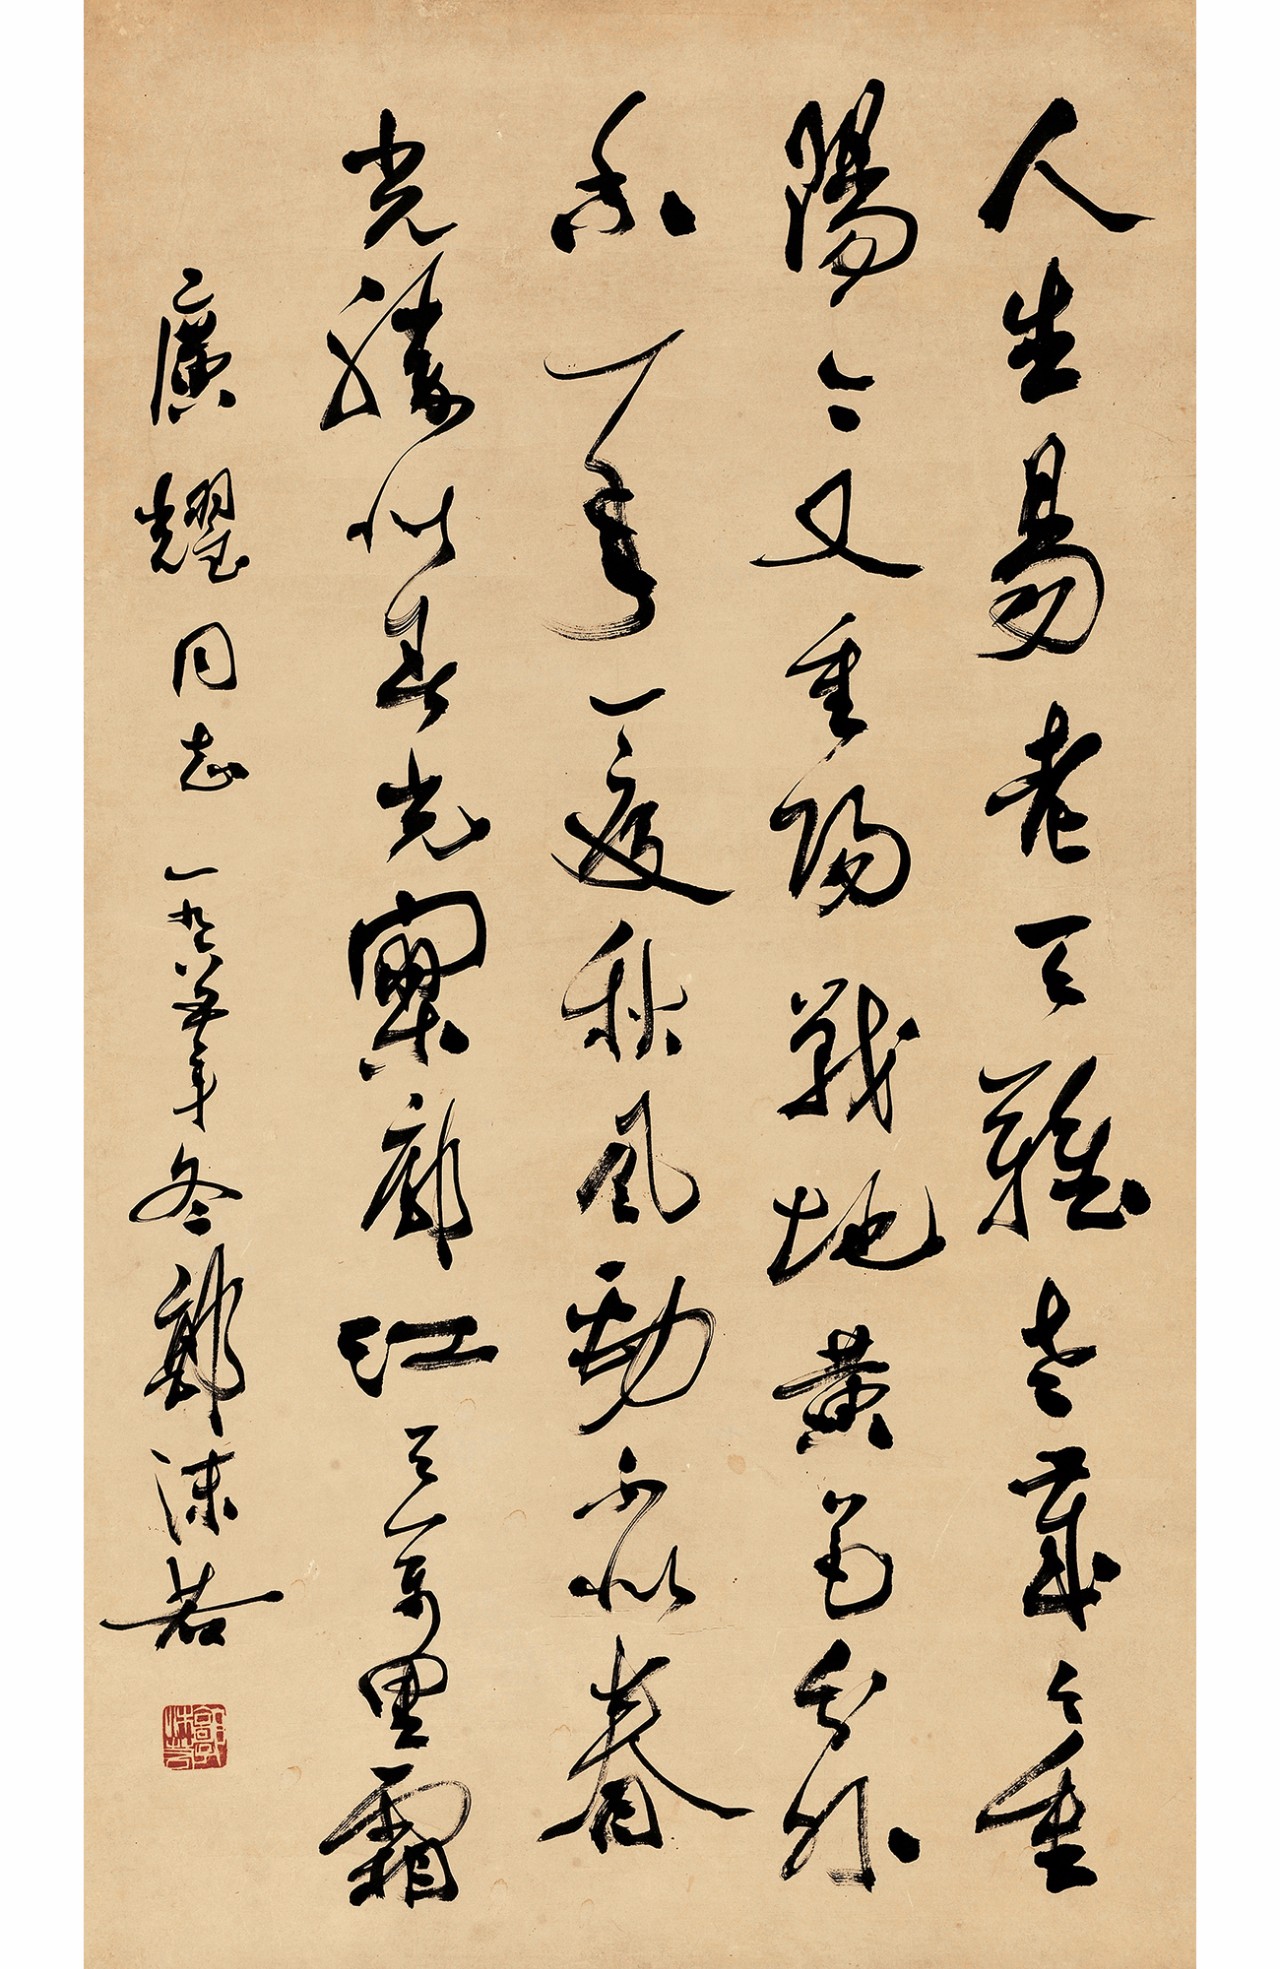 人生易老天難老歲々重
陽今又重陽戰地黃花分外
香一年一度秋風勁不似春
光勝似春光寥廓江天萬里霜
廣耀同志 一九六五年冬 郭沫若
郭沫若